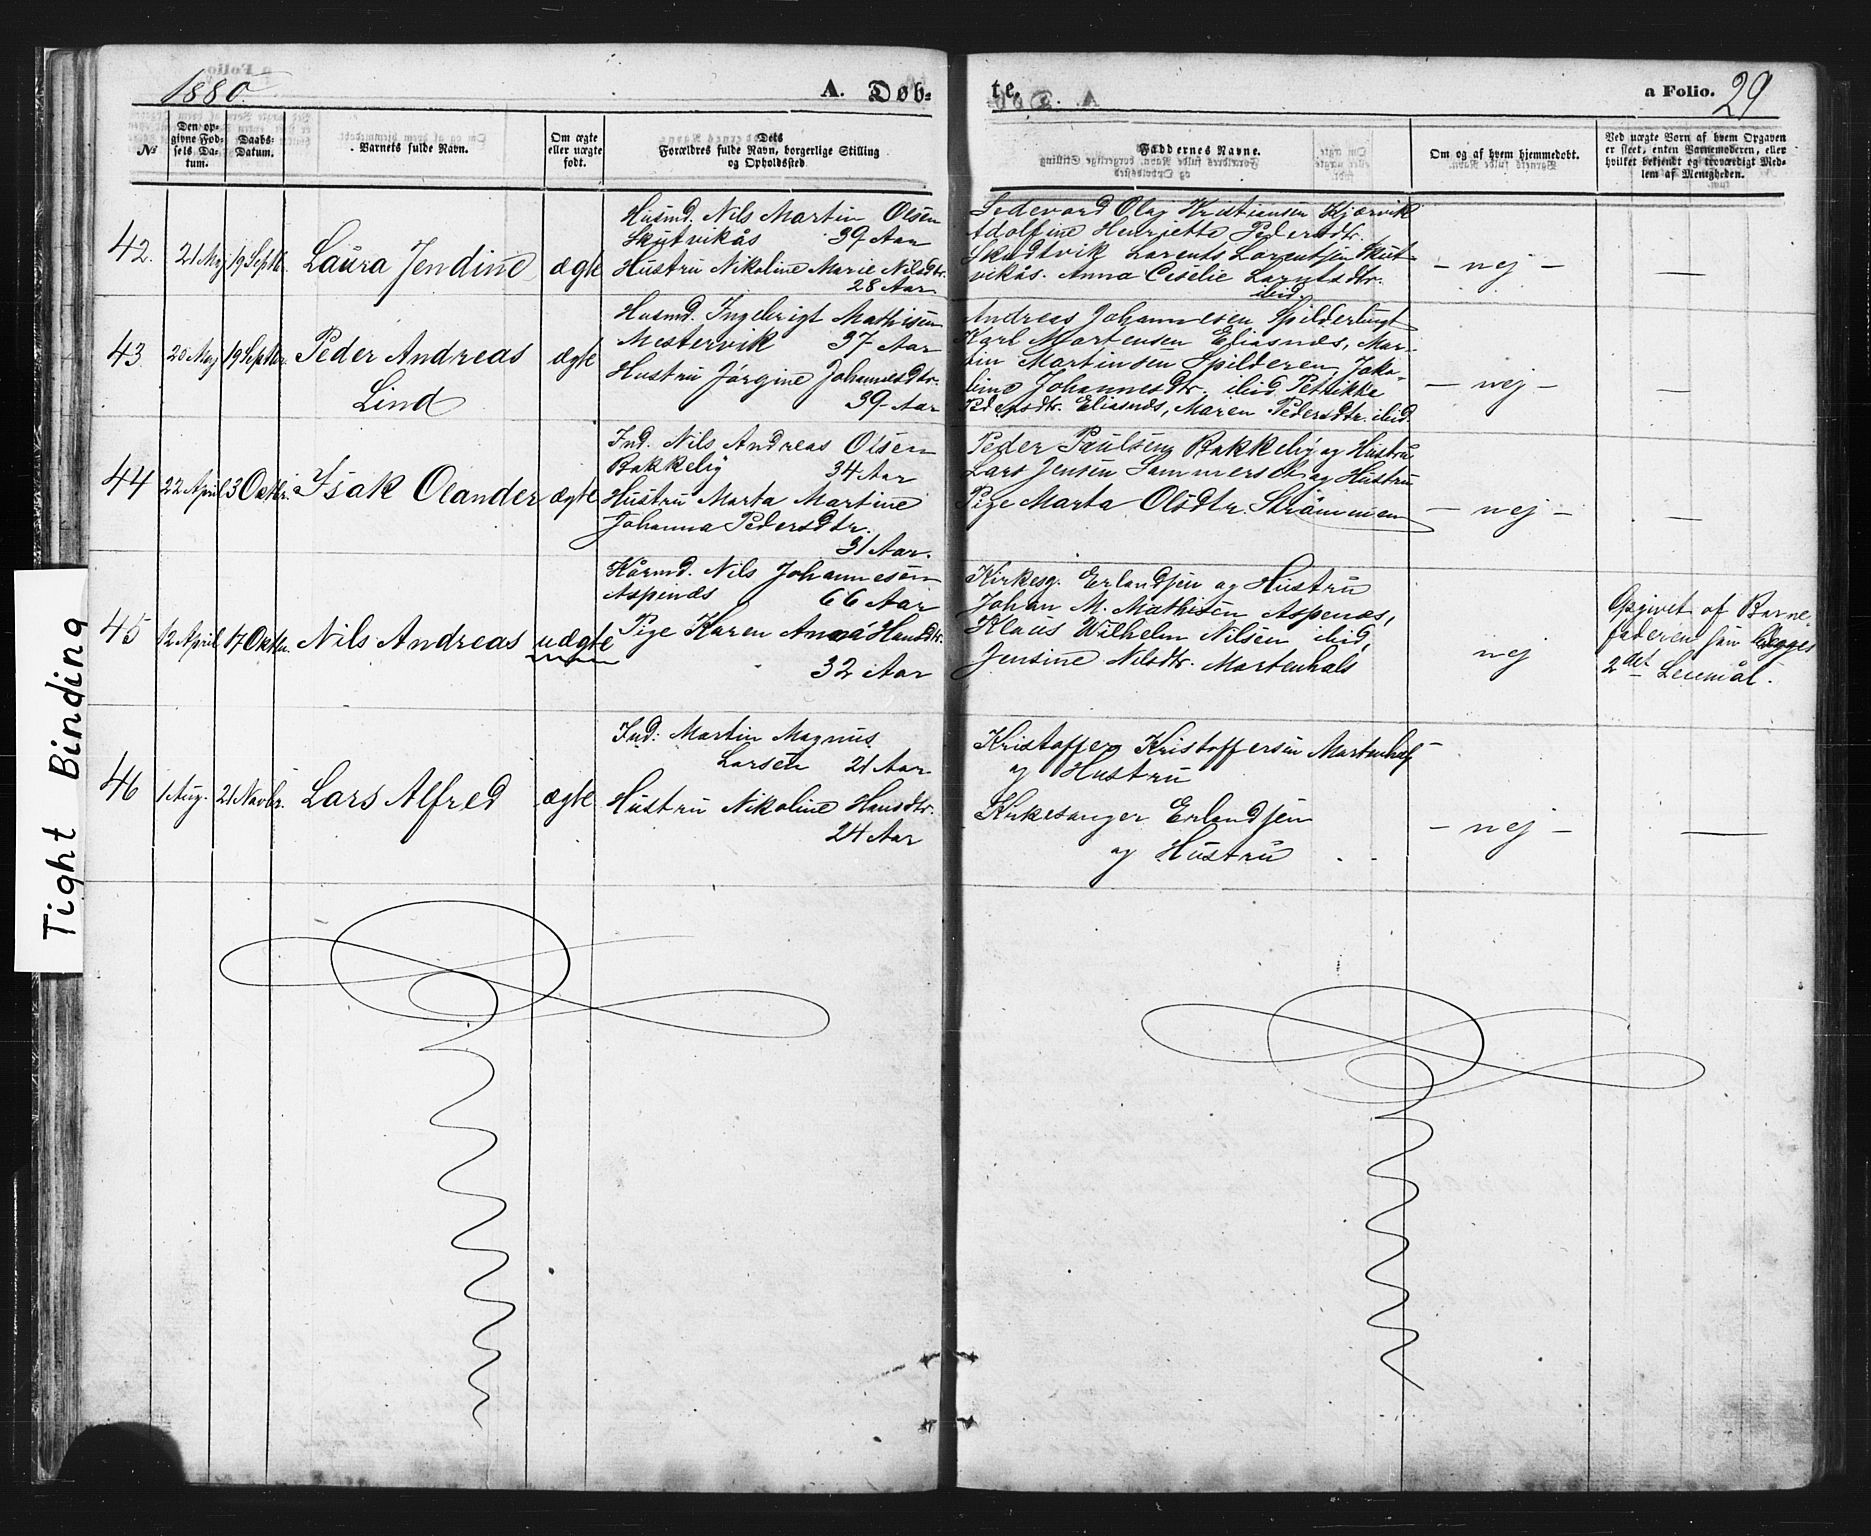 1880.
A. Døb-
te.
a Folio. 29
№
Den op-
givne Fød-
sels Da-
tum.
Daabs-
Datum.
Barnets fulde Navn.
Om ægte
eller uægte
født.
Dets
Forældres fulde Navn, borgerlige Stilling
og Opholdssted.
Faddernes Navne.
Om og af hvem hjemmedøbt.
Ved uægte Børn af hvem Opgaven
er skeet, enten Barnemoderen, eller
hvilket bekjendt og troværdigt Med-
lem af Menigheden.
42.
21 Maj
19 Septbr.
Laura Jendine
ægte
Husmd. Nils Martin Olsen
Skutvikås 39 Aar
Hustru Nikoline Marie Nilsdtr.
28 Aar.
Olaj Kristiansen Kjærvik
Adolfine Henriette Pedersdtr.
Skudtvik Lorents Lorentsen Skut-
vikås. Anna Ciselie Larentsdtr.
ibid.
– nej –
—
43.
20 Maj
19 Septbr.
Peder Andreas
Lind
ægte
Husmd. Ingebrigt Mathisen
Mestervik 37 Aar
Hustru Jörgine Johannesdtr.
39 Aar
Andreas Johannesen Spilderbugt
Karl Mortensen Eliasnæs, Mar-
tin Martinsen Spilderen, Jako-
bine Johannesdtr. ibid. Petrikke
Pedersdtr. Eliasnæs, Maren Pedersdtr. ibid.
– nej –
—
44
22 April
3 Oktbr.
Isak Olander
ægte
Ind. Nils Andreas Olsen
Bakkelig 34 Aar
Hustru Marta Martine
Johanna Pedersdtr.
31 Aar.
Peder Paulsen, Bakkelig og Hustru
Lars Jensen Sommerset og Hustru
Pige Marta Olsdtr. Strömmen
– nej –
—
45
12 April
17 Oktbr.
Nils Andreas
uægte
Kårmd. Nils Johannesen
Aspenæs 66 Aar
Pige Karen Anna Hansdtr.
32 Aar
Kirkesg. Erlandsen og Hustru
Johan M. Mathisen Aspenæs,
Klaus Wilhelm Nilsen ibid.
Jensine Nilsdtr. Mortenhals
nej
Opgivet af Barne-
faderen, han
2det Leiemål.
46
1 Aug.
21 Novbr.
Lars Alfred
ægte
Ind: Martin Magnus
Larsen 21 Aar
Hustru Nikoline Hansdtr.
24 Aar
Kristoffer Kristoffersen Mortenhals
og Hustru
Kirkesanger Erlandsen
og Hustru
– nej –
—
Tight Binding